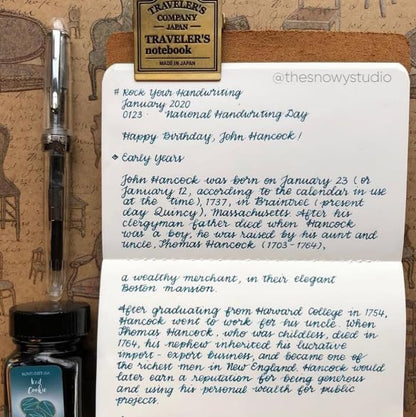 TRAVELER'S
COMPANY
JAPAN
TRAVELER'S
notebook
MADE IN JAPAN
@thesnowystudio
# Rock Your Handwriting
January 2020
0123 National Handwriting Day
Happy Birthday, John Hancock!
Early Years
John Hancock was born on January 23 (or
January 12, according to the calendar in use
at the time), 1737, in Braintree (present
day Quincy), Massachusetts. After his
clergyman father died when Hancock
was a boy, he was raised by his aunt and
uncle, Thomas Hancock (1703-1764),
a wealthy merchant, in their elegant
Boston mansion.
After graduating from Harvard College in 1754,
Hancock went to work for his uncle. When
Thomas Hancock, who was childless, died in
1764, his nephew inherited his lucrative
import - export business, and became one of
the richest men in New England. Hancock would
later earn a reputation for being generous
and using his personal wealth for public
projects.
Cookie